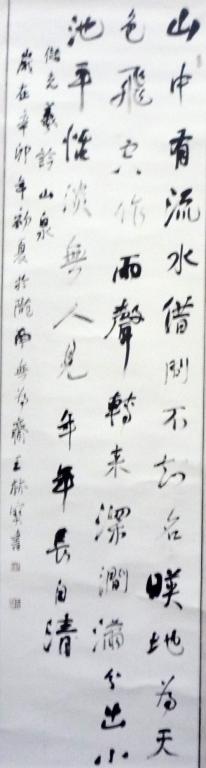 山中有流水借問不知名暎地為天
色飛空作雨聲轉来深澗滿分出小
池平恬淡無人見年年長自清
儲光羲詠山泉
歲在辛卯年初夏於隴南無為齋王林寶書